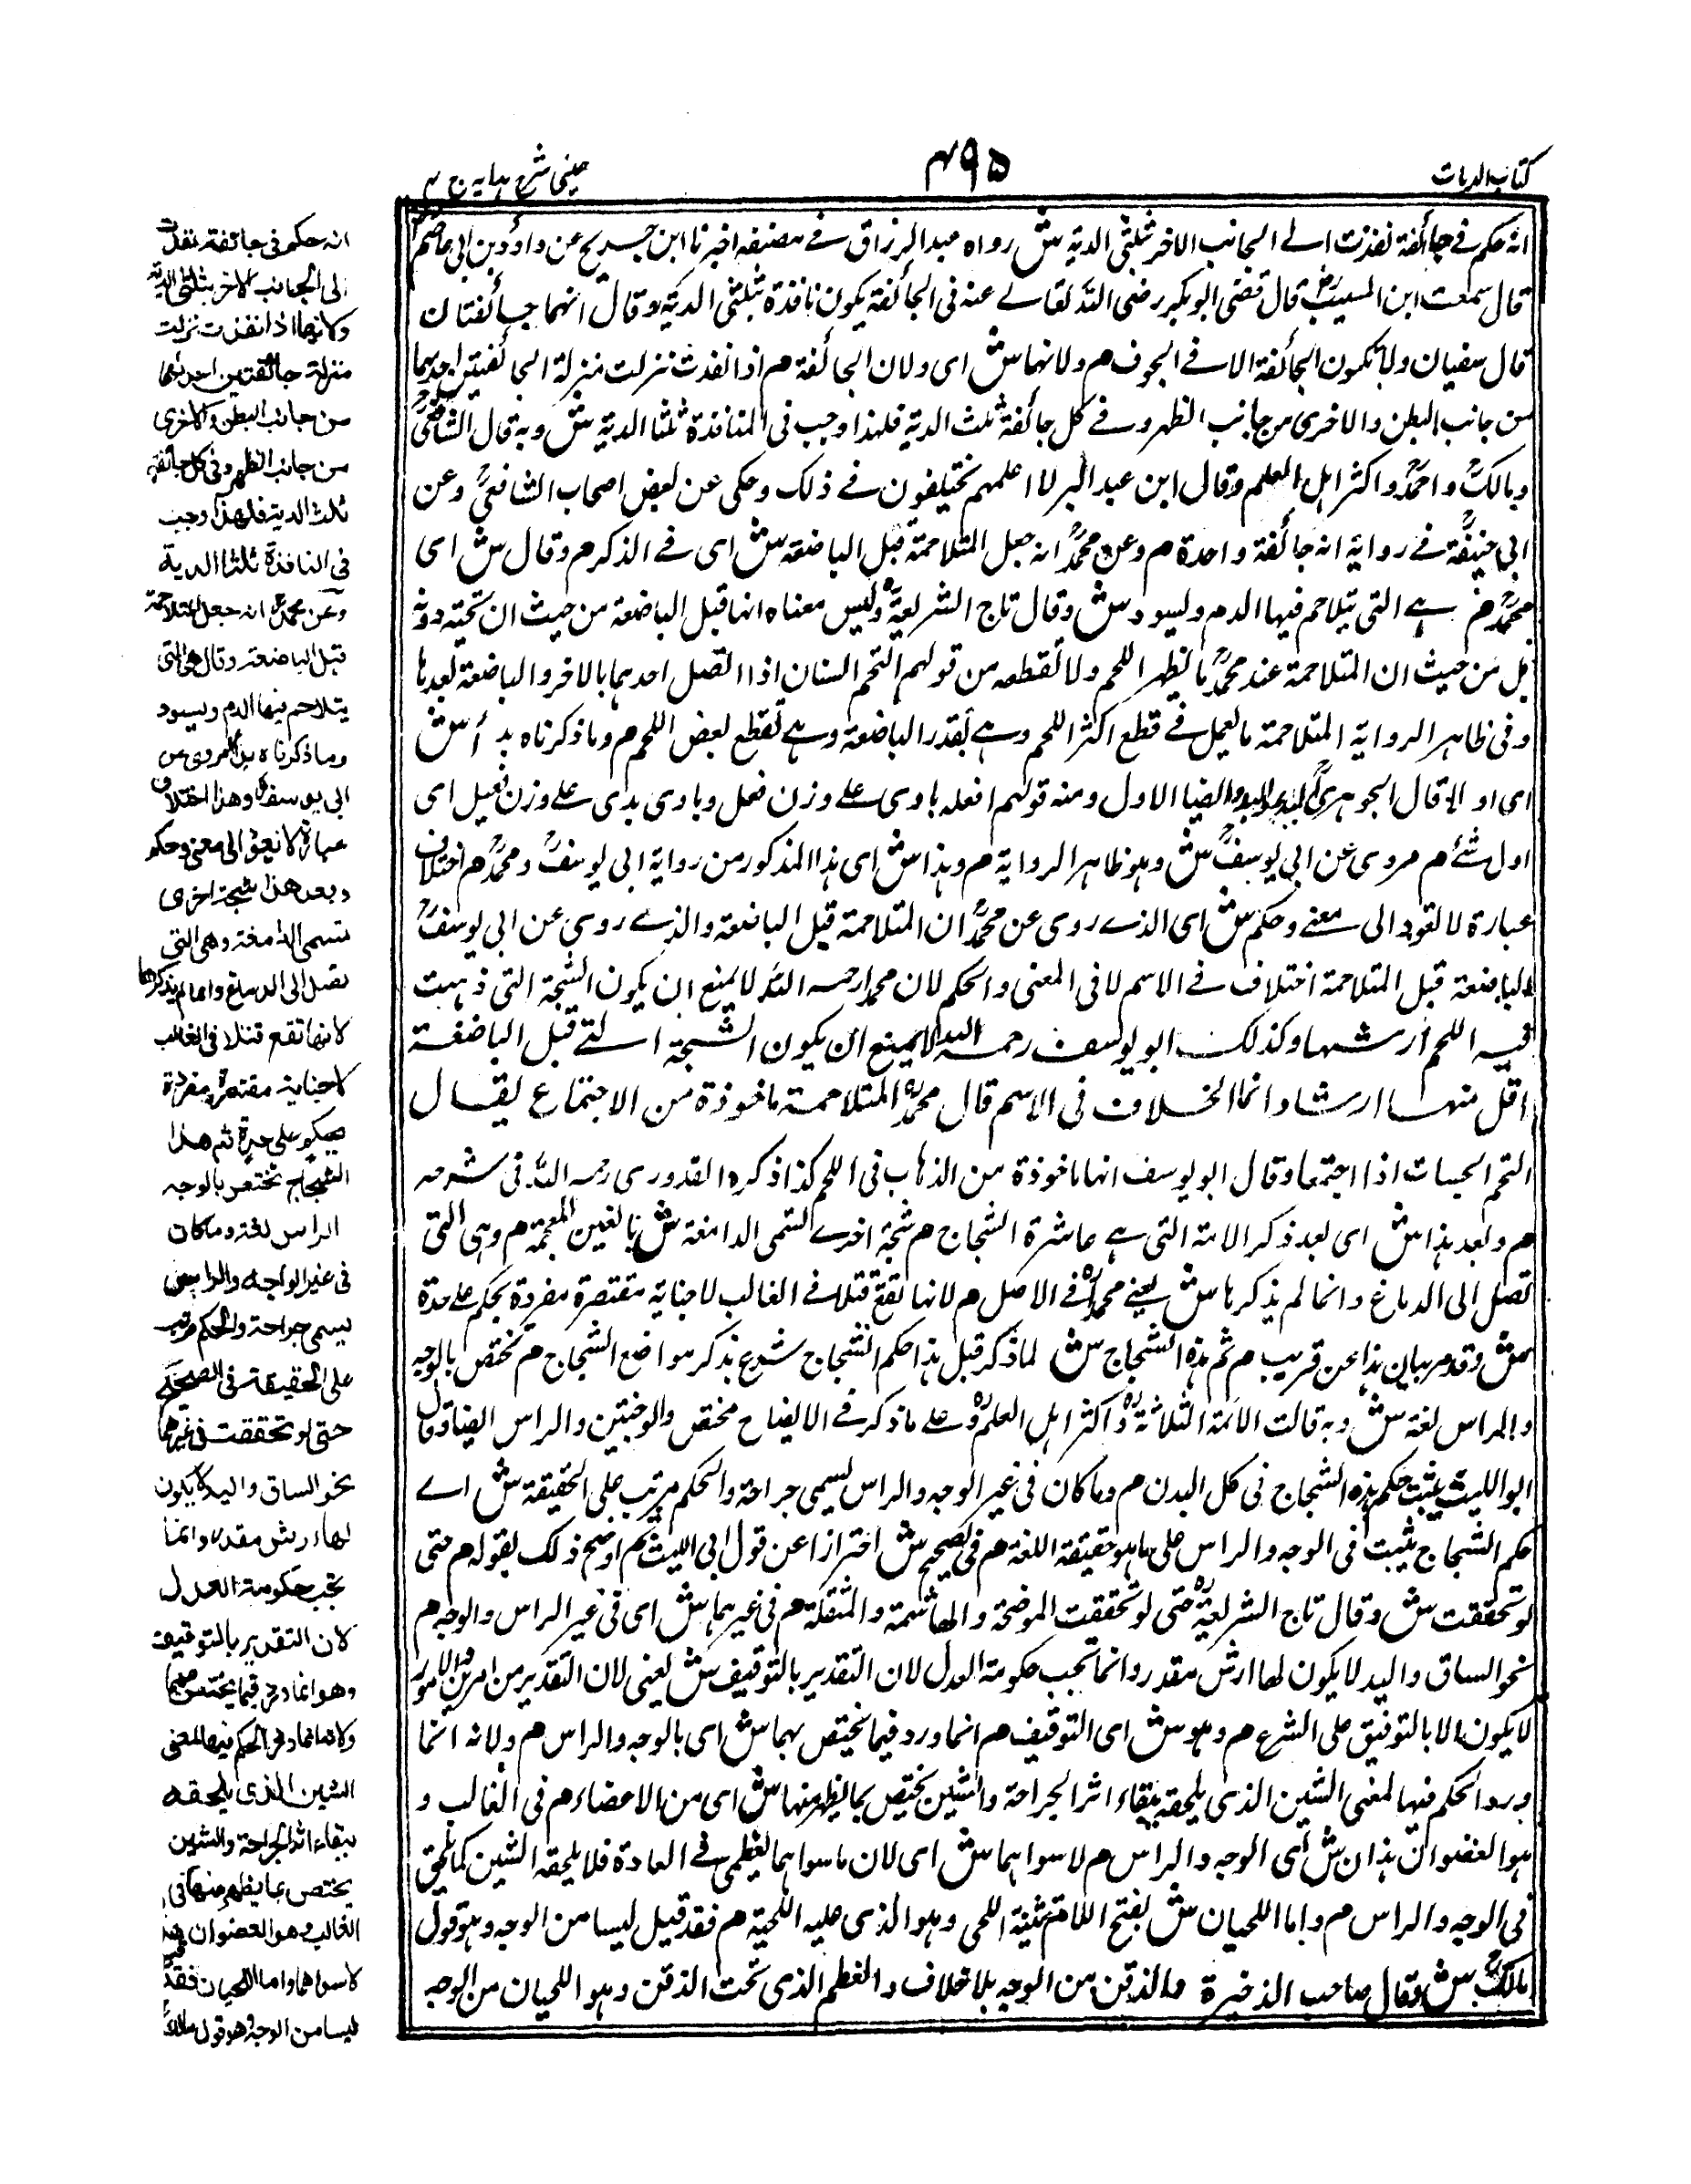 كتاب الديات
٤٩٥
عينى شرح هدايه ج ٤
انه حكم فى جائفة نفذت الى الجانب الاخر بثلثى الدية ش رواه عبد الرزاق فى مصنفه اخبرنا ابن جريج عن داؤد بن ابى عاصم
قال سمعت ابن المسيب قال قضى ابو بكر رضى الله تعالى عنه فى الجائفة يكون نافذة بثلثى الدية وقال انهما جائفتان
قال سفيان ولا تكون الجائفة الا فى الجوف م ولانها ش اى ولان الجائفة م اذا نفذت نزلت منزلة الجائفتين احدهما
من جانب البطن والاخرى من جانب الظهر وفى كل جائفة ثلث الدية فلهذا وجب فى النافذة ثلثا الدية ش وبه قال الشافعى
ومالك واحمد واكثر اهل العلم وقال ابن عبد البر لا اعلمهم يختلفون فى ذلك وحكى عن بعض اصحاب الشافعى وعن
ابى حنيفة فى رواية انه جائفة واحدة م وعن محمد انه جعل المتلاحمة قبل الباضعة ش اى فى الذكر م وقال ش اى
محمد م هى التى يتلاحم فيها الدم ويسود ش وقال تاج الشريعة وليس معناه انها قبل الباضعة من حيث ان شجته دونه
بل من حيث ان المتلاحمة عند محمد ما يظهر اللحم ولا تقطعه من قولهم التحم السنان اذا اتصل احدهما بالاخر والباضعة بعدها
وفى ظاهر الرواية المتلاحمة ما يعمل فى قطع اكثر اللحم وهى بقدر الباضعة وهى تقطع بعض اللحم م وما ذكرناه بدأ ش
اى اولا قال الجوهرى البدء والبدى ايضا الاول ومنه قولهم افعله بادى على وزن فعل وبادى بدى على وزن فعيل اى
اول شئ م مروى عن ابى يوسف ش وهو ظاهر الرواية م وهذا ش اى هذا المذكور من رواية ابى يوسف ومحمد م اختلاف
عبارة لا تعود الى معنى وحكم ش اى الذى روى عن محمد ان المتلاحمة قبل الباضعة والذى روى عن ابى يوسف
الباضعة قبل المتلاحمة اختلاف فى الاسم لا فى المعنى والحكم لان محمدا رحمه الله لا يمنع ان يكون الشجة التى ذهبت
فيه اللحم ارشها وكذلك ابو يوسف رحمه الله لا يمنع ان يكون الشجة التى قبل الباضعة
اقل منها ارشا وانما الخلاف فى الاسم قال محمد المتلاحمة ماخوذة من الاجتماع يقال
التحم الجيشان اذا اجتمعا وقال ابو يوسف انها ماخوذة من الذهاب فى اللحم كذا ذكره القدورى رحمه الله فى شرحه
م وبعد هذا ش اى بعد ذكر الامة التى هى عاشرة الشجاج م شجة اخرى تسمى الدامغة ش بالغين المعجمة م وهى التى
تصل الى الدماغ وانما لم يذكرها ش يعنى محمد فى الاصل م لانها تقع قتلا فى الغالب لا جناية مقتصرة مفردة بحكم على حدة
ش وقد مر بيان هذا عن قريب م ثم هذه الشجاج ش لما ذكر قبل هذا حكم الشجاج شرع بذكر مواضع الشجاج م تختص بالوجه
والراس لغة ش وبه قالت الائمة الثلاثة واكثر اهل العلم وعلى ما ذكر فى الايضاح مختص والوجنتين والراس ايضا وقال
ابو الليث يثبت حكم هذه الشجاج فى كل البدن م وما كان فى غير الوجه والراس يسمى جراحة والحكم مرتب على الحقيقة ش اى
حكم الشجاج يثبت فى الوجه والراس على ما هو حقيقة اللغة م فى الصحيح ش احترازا عن قول ابى الليث ثم اوضح ذلك بقوله م حتى
لو تحققت ش وقال تاج الشريعة حتى لو تحققت الموضحة والهاشمة والمنقلة م فى غيرهما ش اى فى غير الراس والوجه م
نحو الساق واليد لا يكون لها ارش مقدر وانما تجب حكومة العدل لان التقدير بالتوقيف ش يعنى لان التقدير من امر من الامور
لا يكون الا بالتوفيق على الشرع م وهو ش اى التوقيف م انما ورد فيما يختص بهما ش اى بالوجه والراس م ولانه انما
ورد الحكم فيها لمعنى الشين الذى يلحقه ببقاء اثر الجراحة والشين يختص بما يظهر منها ش اى من الاعضاء م فى الغالب و
هو العضوان هذان ش اى الوجه والراس م لا سواهما ش اى لان ما سواهما يغطى فى العادة فلا يلحقه الشين كما يلحق
فى الوجه والراس م واما اللحيان ش بفتح اللام تثنية اللحى وهو الذى عليه اللحية م فقد قيل ليسا من الوجه وهو قول
مالك ش وقال صاحب الذخيرة والذقن من الوجه بلا خلاف والعظم الذى تحت الذقن وهو اللحيان من الوجه
انه حكم فى جائفة نفذت
الى الجانب الاخر بثلثى الدية
وكانها اذا نفذت نزلت
منزلة جائفتين احدىهما
من جانب البطن والاخرى
من جانب الظهر وفى كل جائفة
ثلث الدية فلهذا وجب
فى النافذة ثلثا الدية
وعن محمد انه جعل المتلاحمة
قبل الباضعة وقال هى التى
يتلاحم فيها الدم ويسود
وما ذكرناه بدأ مروى عن
ابى يوسف وهذا اختلاف
عبارة لا يعود الى معنى وحكم
وبعد هذا شجة اخرى
تسمى الدامغة وهى التى
تصل الى الدماغ وانما لم يذكرها
لانها تقع قتلا فى الغالب
لا جناية مقتصرة مفردة
بحكم على حدة ثم هذا
الشجاج تختص بالوجه
الراس لغة وما كان
فى غير الوجه والراس
يسمى جراحة والحكم مرتب
على الحقيقة فى الصحيح
حتى لو تحققت فى غيرهما
نحو الساق واليد لا يكون
لها ارش مقدر وانما
تجب حكومة العدل
لان التقدير بالتوقيف
وهو انما ورد فيما يختص بهما
ولانه انما ورد الحكم فيها لمعنى
الشين الذى يلحقه
ببقاء اثر الجراحة والشين
يختص بما يظهر منها فى
الغالب وهو العضوان هذان
لا سواهما واما اللحيان فقد قيل
ليسا من الوجه وهو قول مالك